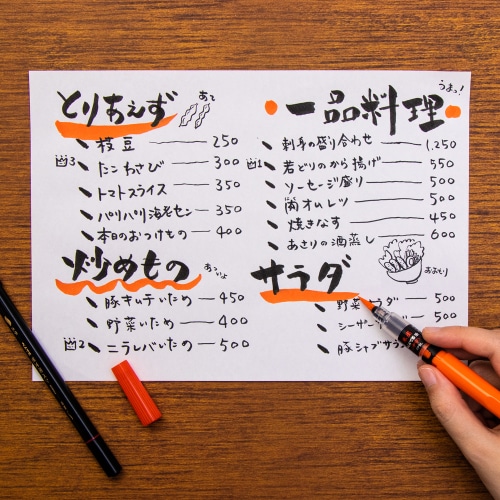 とりあえず
あて
枝豆 250
3 たこわさび 300
トマトスライス 350
パリパリ海老セン 350
本日のおつけもの 400
炒めもの
あつぃよ
豚キムチいため 450
野菜いため 400
2 ニラレバいため 500
一品料理
うまっ!
刺身の盛り合わせ 1,250
1 若どりのから揚げ 550
ソーセージ盛り 500
肉オムレツ 500
焼きなす 450
あさりの酒蒸し 600
サラダ
野菜サラダ 500
シーザー 500
豚シャブサラ